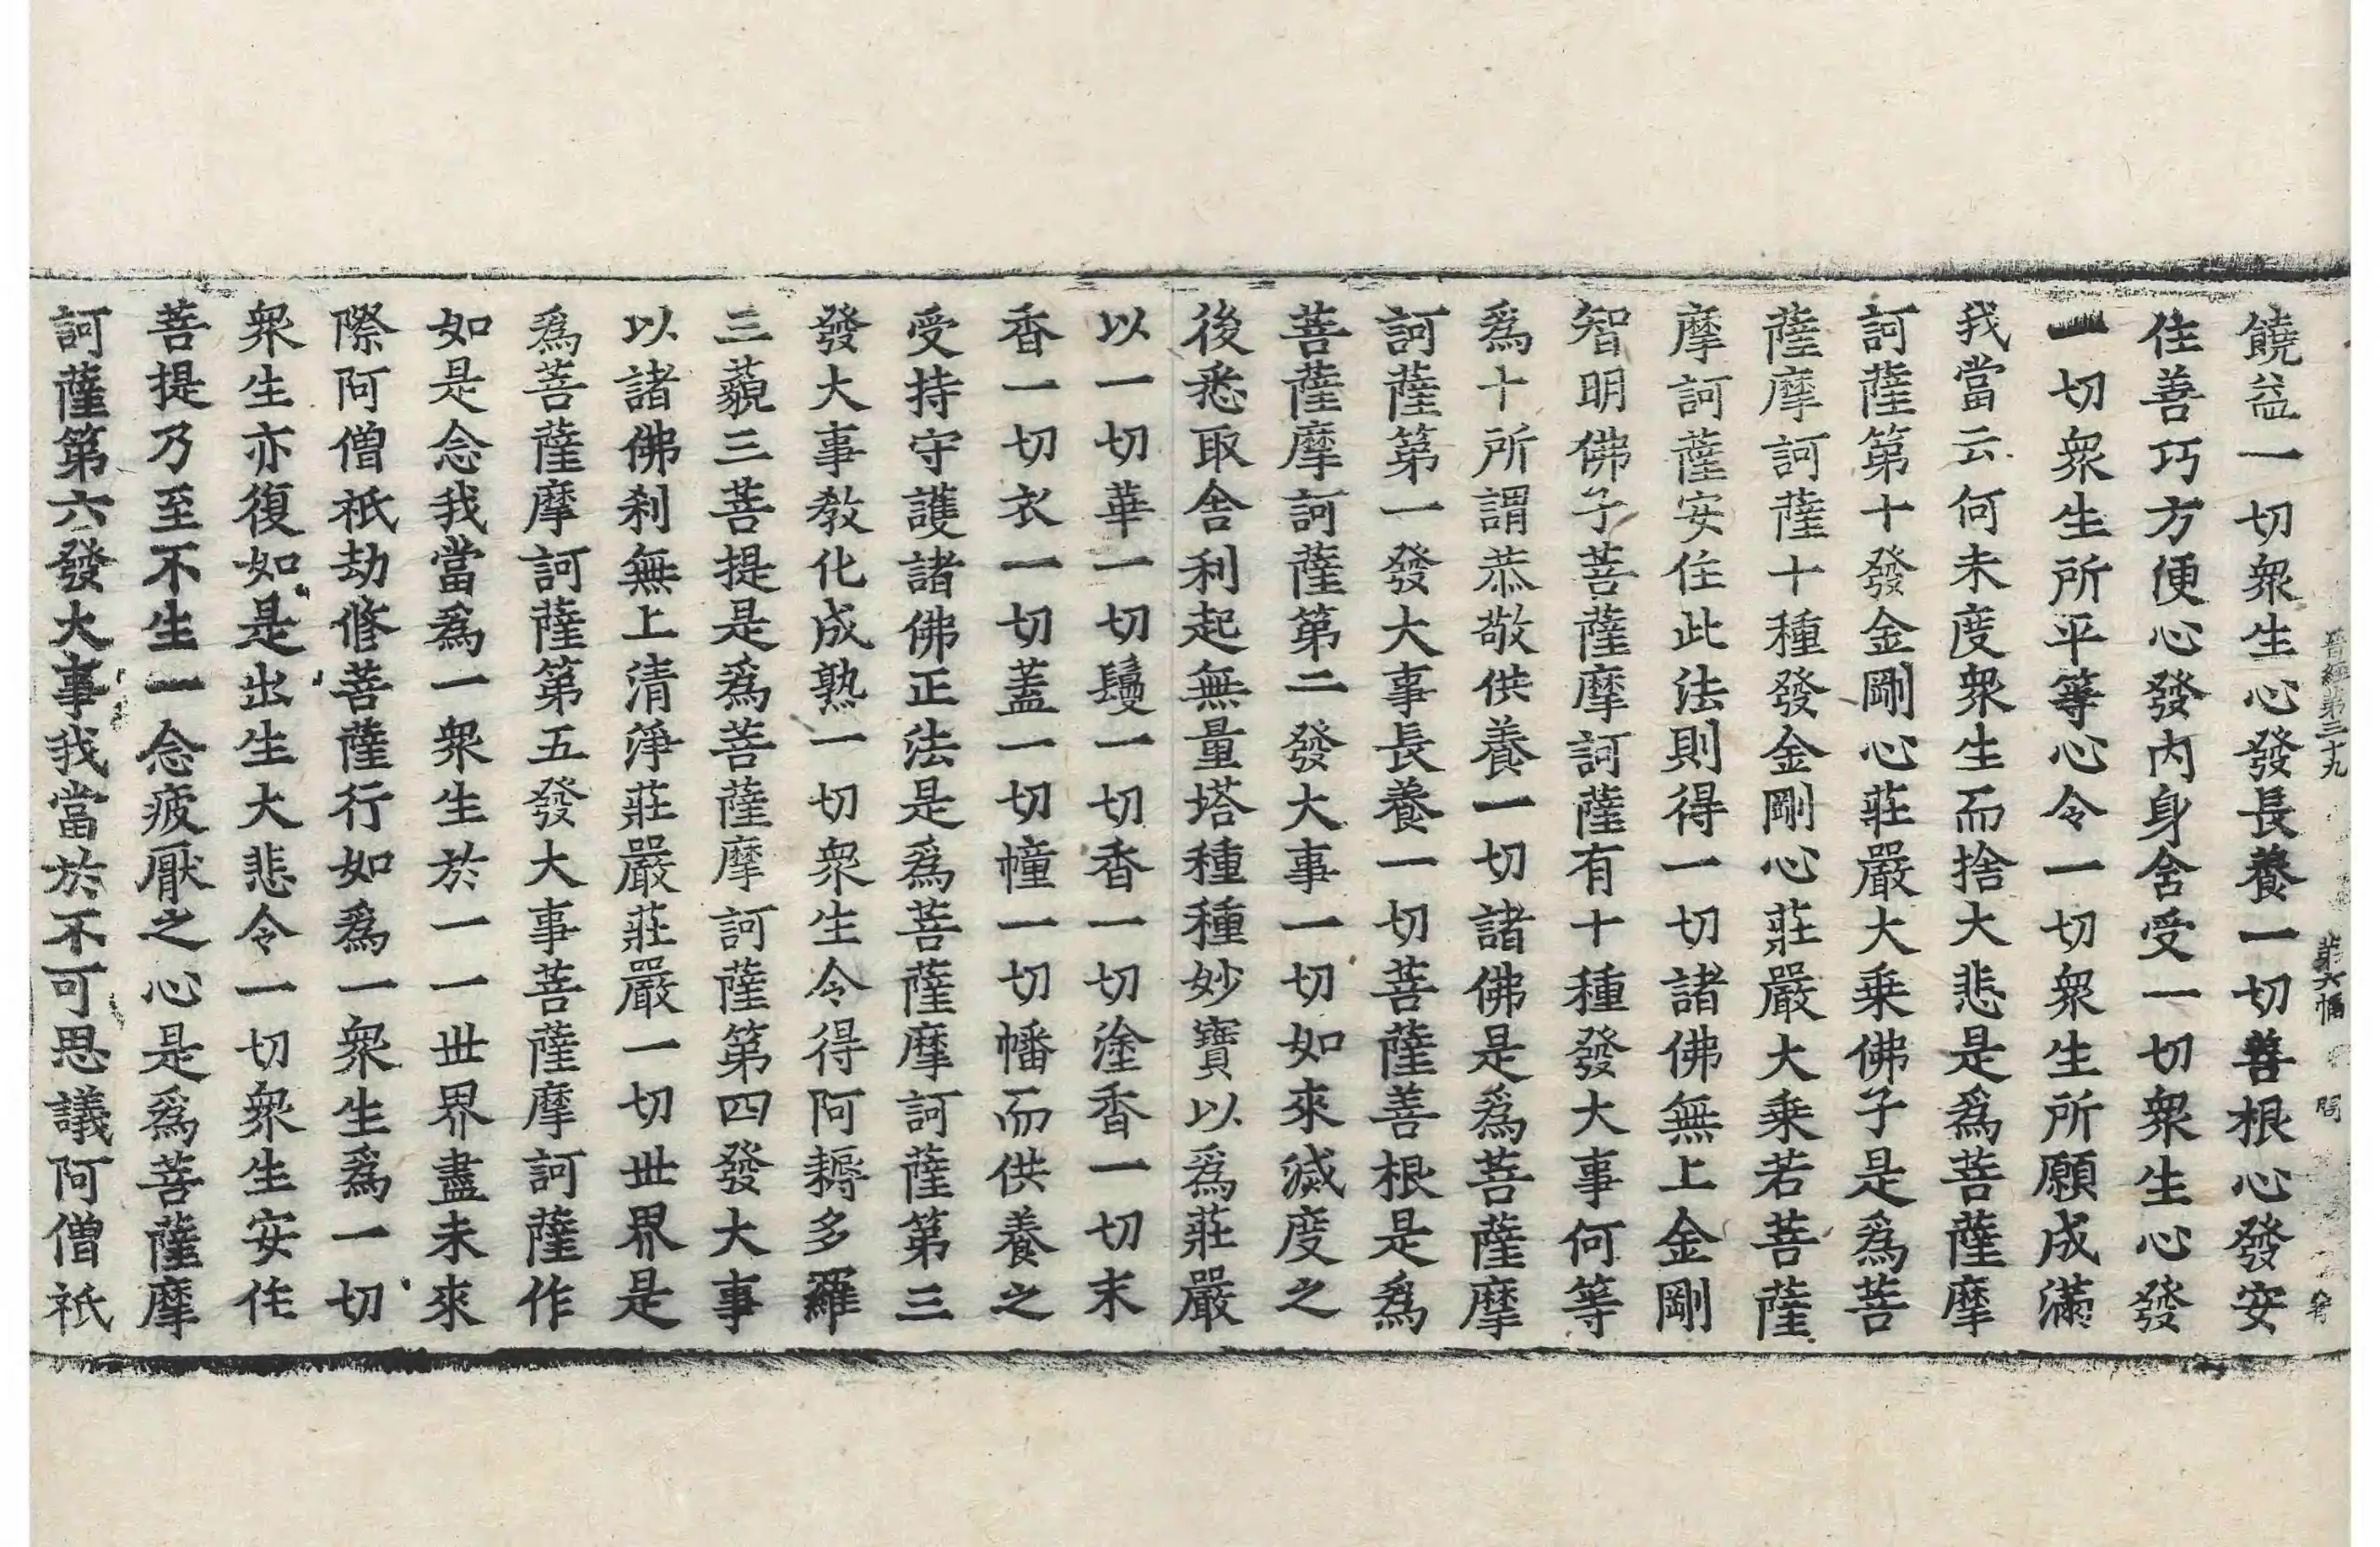 晉經第三十九　第六幅　問
饒益一切衆生心發長養一切善根心發安
住善巧方便心發内身舍受一切衆生心發
一切衆生所平等心令一切衆生所願成滿
我當云何未度衆生而捨大悲是爲菩薩摩
訶薩第十發金剛心莊嚴大乗佛子是爲菩
薩摩訶薩十種發金剛心莊嚴大乗若菩薩
摩訶薩安住此法則得一切諸佛無上金剛
智明佛子菩薩摩訶薩有十種發大事何等
爲十所謂恭敬供養一切諸佛是爲菩薩摩
訶薩第一發大事長養一切菩薩善根是爲
菩薩摩訶薩第二發大事一切如來滅度之
後悉取舍利起無量塔種種妙寶以爲莊嚴
以一切華一切鬘一切香一切塗香一切末
香一切衣一切盖一切幢一切幡而供養之
受持守護諸佛正法是爲菩薩摩訶薩第三
發大事教化成熟一切衆生令得阿耨多羅
三藐三菩提是爲菩薩摩訶薩第四發大事
以諸佛刹無上清淨莊嚴莊嚴一切世界是
爲菩薩摩訶薩第五發大事菩薩摩訶薩作
如是念我當爲一衆生於一一世界盡未來
際阿僧祇劫修菩薩行如爲一衆生爲一切
衆生亦復如是出生大悲令一切衆生安住
菩提乃至不生一念疲厭之心是爲菩薩摩
訶薩第六發大事我當於不可思議阿僧祇